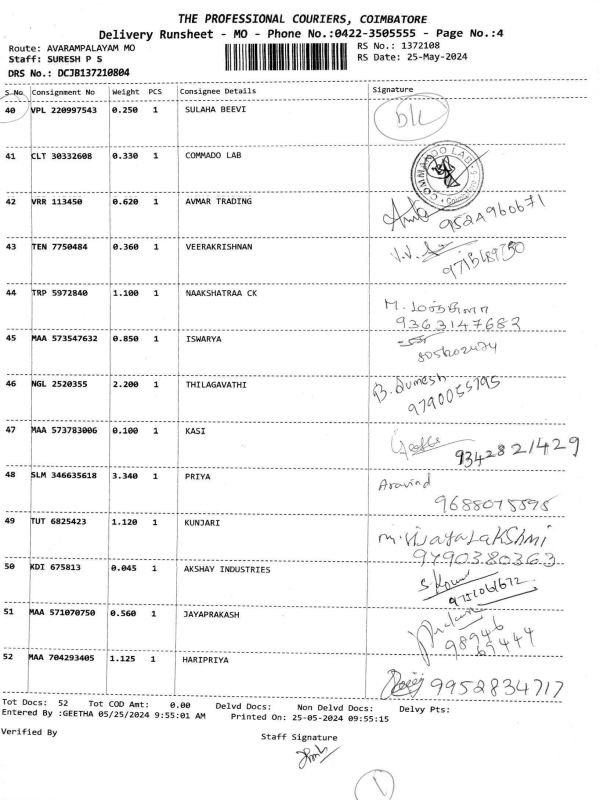 THE PROFESSIONAL COURIERS, COIMBATORE
Delivery Runsheet - MO - Phone No.:0422-3505555 - Page No.:4
Route: AVARAMPALAYAM MO RS No.: 1372108
Staff: SURESH P S RS Date: 25-May-2024
DRS No.: DCJB137210804
S No Consignment No Weight PCS Consignee Details Signature
40 VPL 220997543 0.250 1 SULAHA BEEVI
41 CLT 30332608 0.330 1 COMMADO LAB COMMANDO LAB
42 VRR 113450 0.620 1 AVMAR TRADING
43 TEN 7750484 0.360 1 VEERAKRISHNAN
44 TRP 5972840 1.100 1 NAAKSHATRAA CK
9363147682
45 MAA 573547632 0.850 1 ISWARYA
46 NGL 2520355 2.200 1 THILAGAVATHI
9790055795
47 MAA 573783006 0.100 1 KASI
9342821429
48 SLM 346635618 3.340 1 PRIYA Aravind
9688075595
49 TUT 6825423 1.120 1 KUNJARI M. VIJAYALAKSHMI
9790380363
50 KDI 675813 0.045 1 AKSHAY INDUSTRIES
51 MAA 571070750 0.560 1 JAYAPRAKASH
52 MAA 704293405 1.125 1 HARIPRIYA
9952834717
Tot Docs: 52 Tot COD Amt: 0.00 Delvd Docs: Non Delvd Docs: Delvy Pts:
Entered By :GEETHA 05/25/2024 9:55:01 AM Printed On: 25-05-2024 09:55:15
Verified By Staff Signature
1